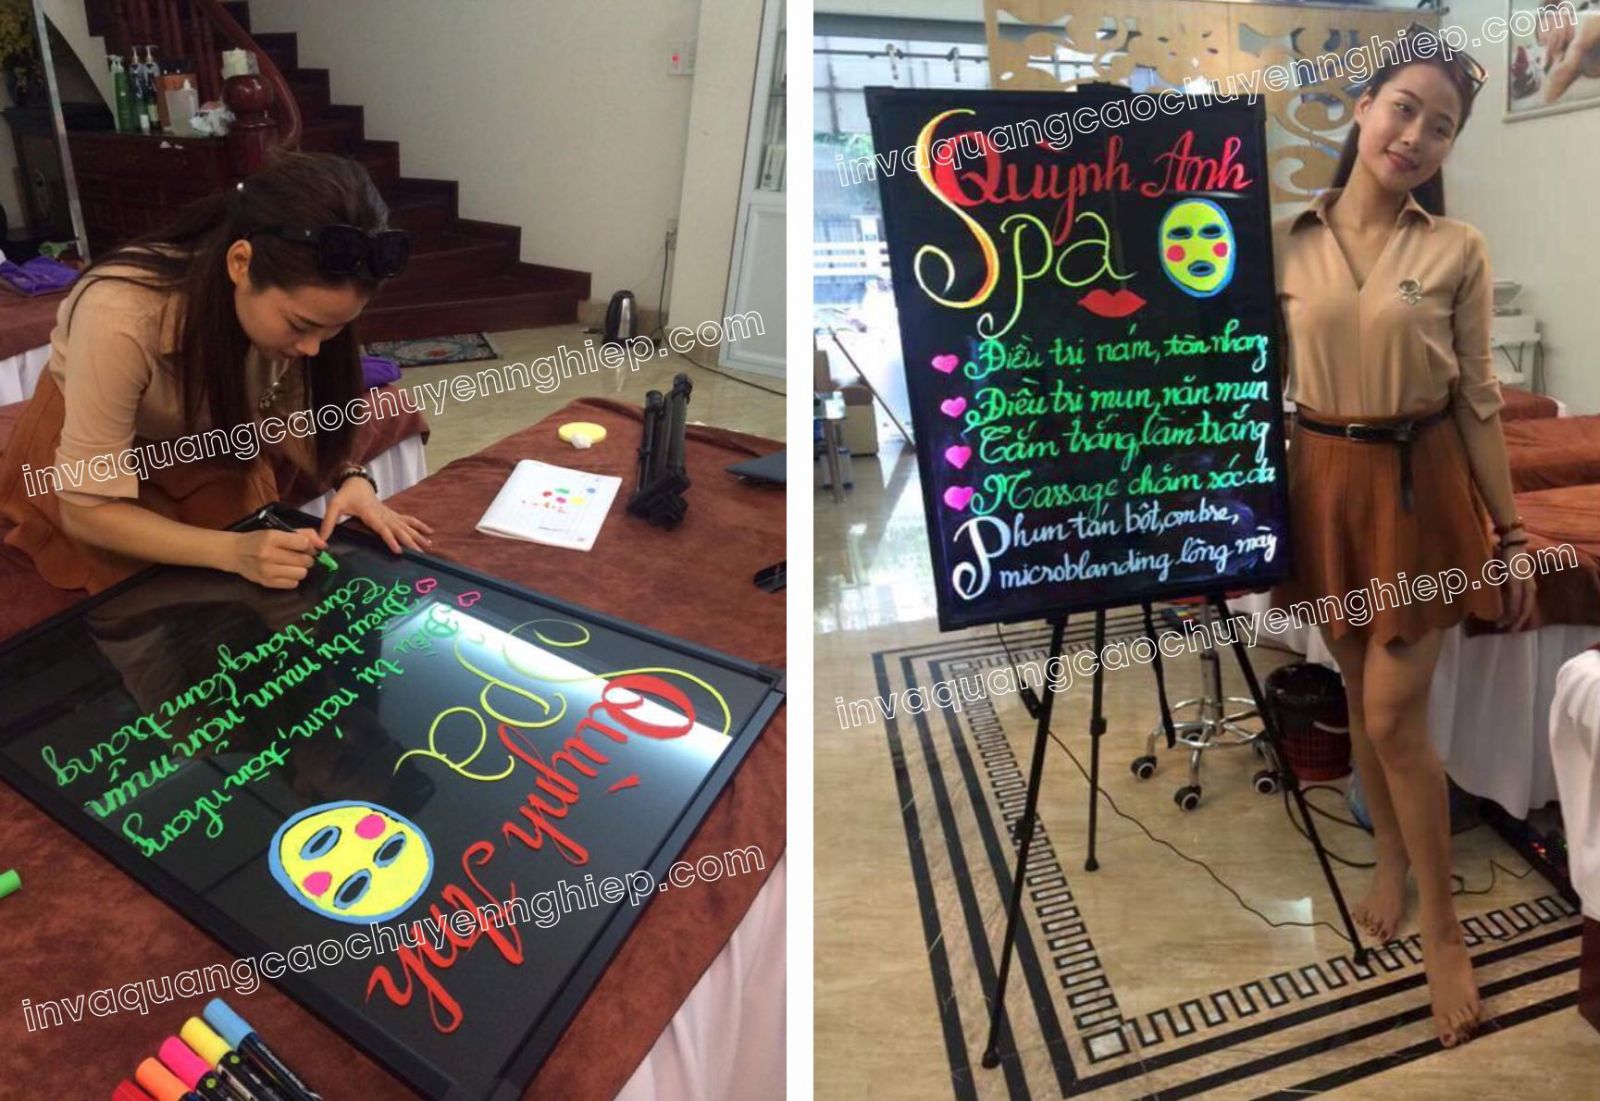 Quỳnh Anh
Spa
Điều trị nám, tàn nhang
Điều trị mụn, nặn mụn
Tắm trắng, làm trắng
invaquangcaochuyennghiep.com
invaquangcaochuyennghiep.com
Quỳnh Anh
Spa
Điều trị nám, tàn nhang
Điều tri mun, năn mun
Tắm trắng, làm trắng
Massage chăm sóc da
Phun tán bột, ombre,
microblanding lông mày
invaquangcaochuyennghiep.com
invaquangcaochuyennghiep.com